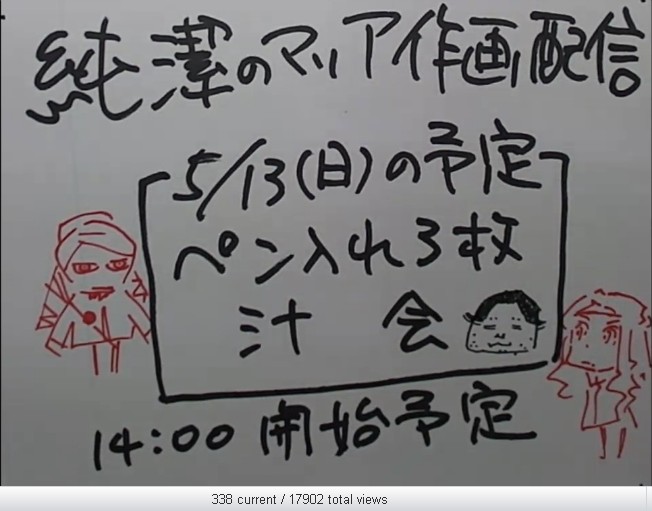 純潔のマリア作画配信
5/13(日)の予定
ペン入れ3枚
汁 会
14:00 開始予定
338 current / 17902 total views